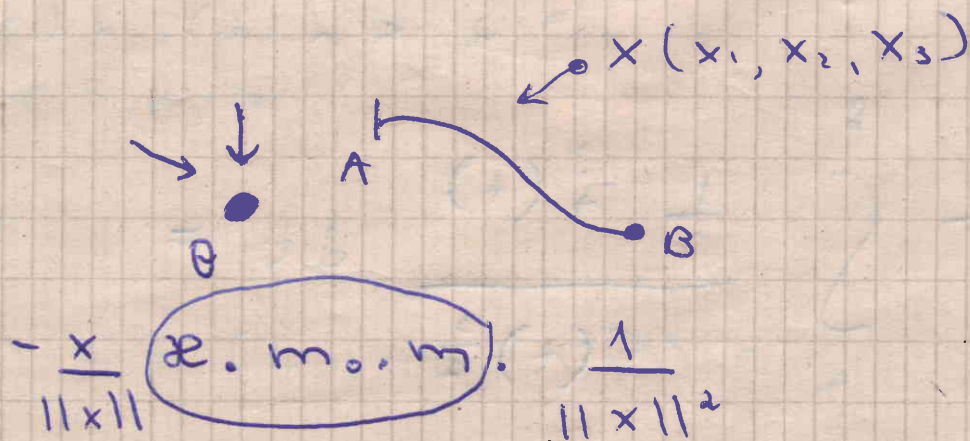 X (x₁, x₂, x₃)
A
B
θ
- x/||x|| æ. m₀. m. 1/||x||²